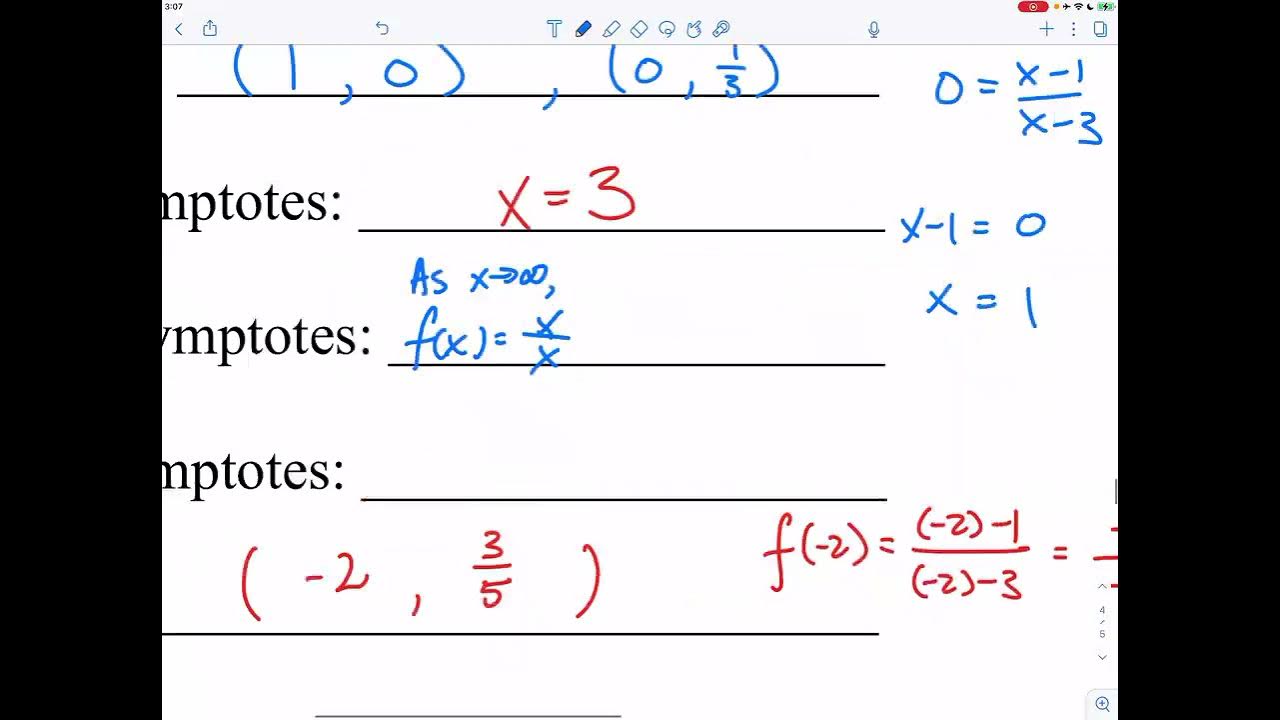 3:07
(1, 0), (0, 1/3)
0 = x-1/x-3
mptotes: x = 3
x-1 = 0
As x→∞,
x = 1
ymptotes: f(x) = x/x
mptotes:
(-2, 3/5)
f(-2) = (-2)-1/(-2)-3 =
4
5